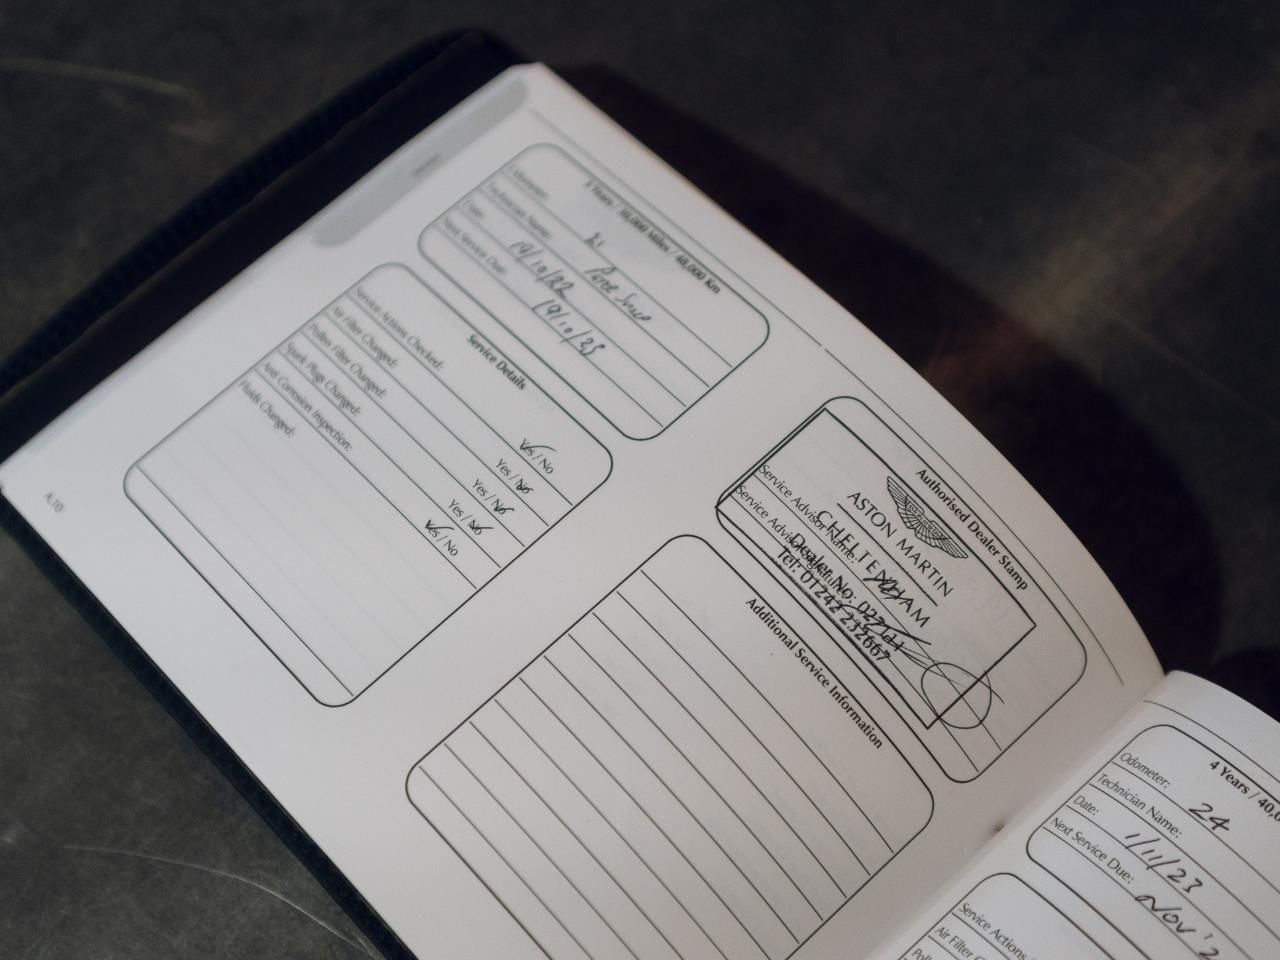 3 Years / 30,000 Miles / 48,000 Km
Odometer: 21
Technician Name: Pete
Date: 19/10/22
Next Service Due: 19/10/23
Service Details
Service Actions Checked: Yes / No
Air Filter Changed: Yes / No
Pollen Filter Changed: Yes / No
Spark Plugs Changed: Yes / No
Anti Corrosion Inspection: Yes / No
Fluids Changed:
A.10
Authorised Dealer Stamp
ASTON MARTIN
ASTON MARTIN
CHELTENHAM
Dealer No:
Tel: 01242 232667
Service Advisor Name:
Service Advisor Signature:
Additional Service Information
4 Years / 40,0
Odometer: 24
Technician Name:
Date: 1/11/23
Next Service Due: Nov '2
Service Actions
Air Filter C
Poll